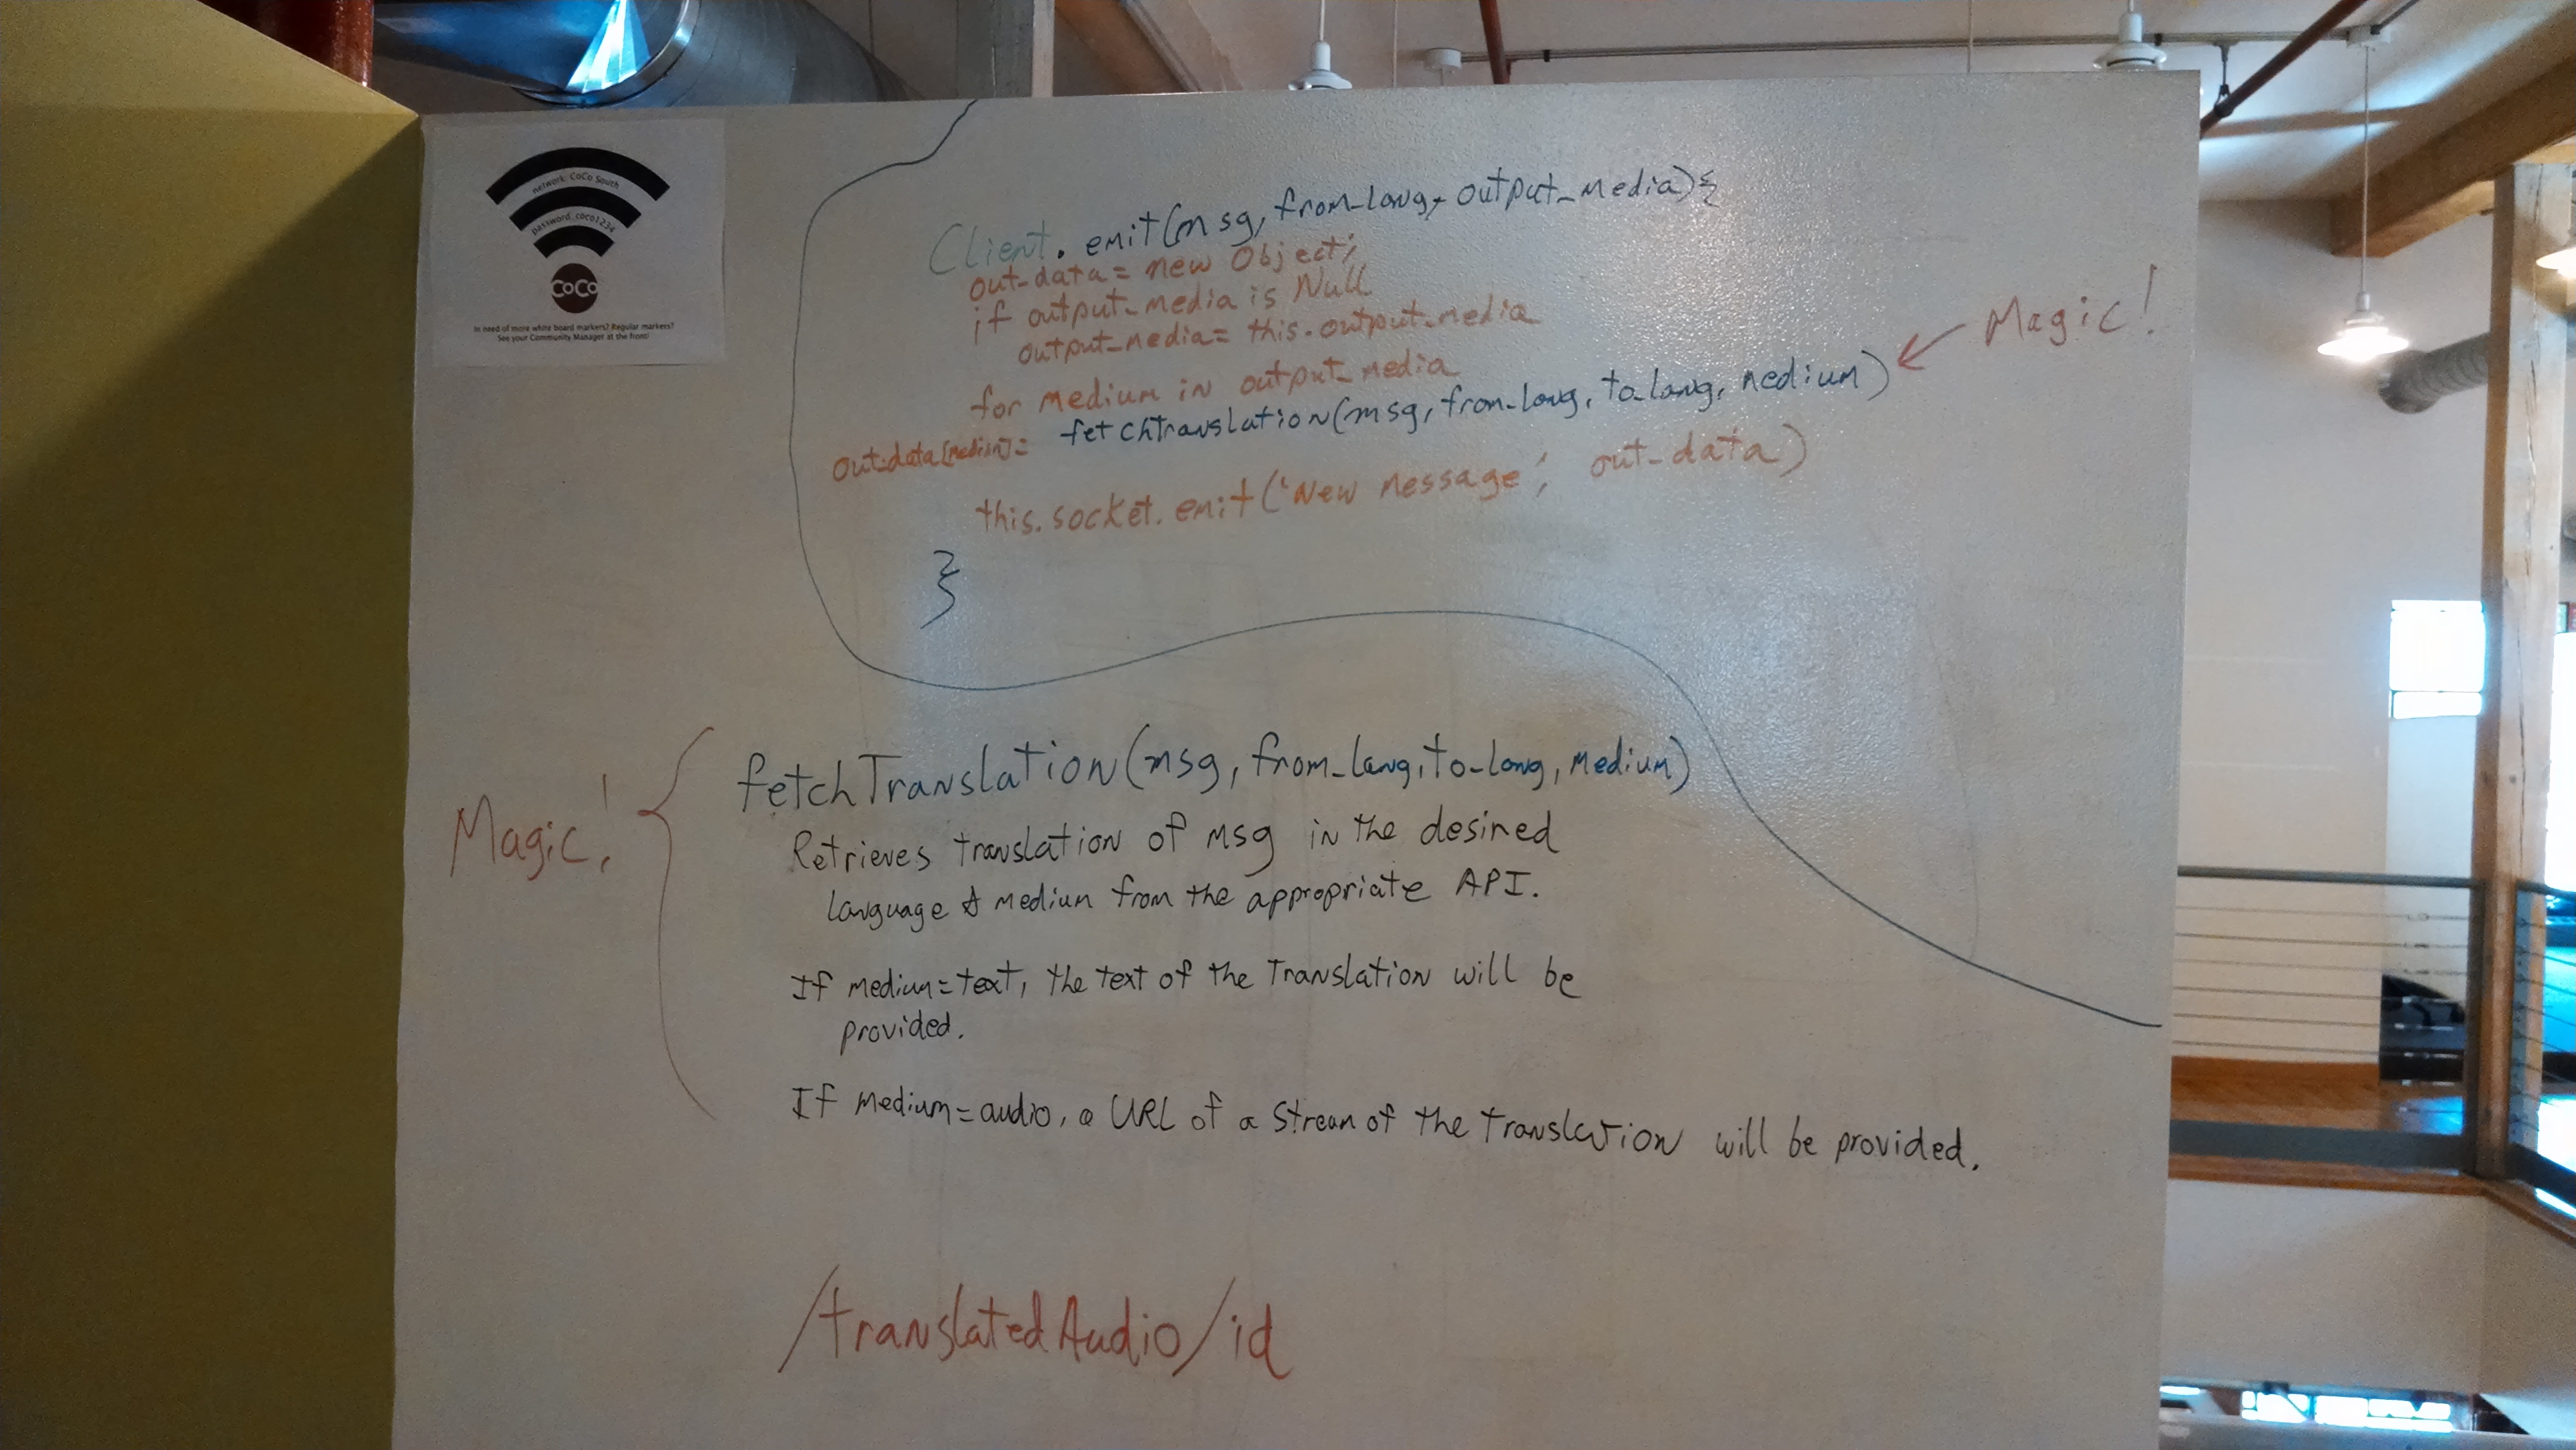 network: CoCo South
password: coco1234
CoCo
In need of more white board markers? Regular markers?
See your Community Manager at the front!
Client.emit(msg, from_lang, output_media){
out_data = new Object;
if output_media is Null
output_media = this.output_media
for medium in output_media
out_data[medium] = fetchTranslation(msg, from_lang, to_lang, medium)
Magic!
this.socket.emit('New message', out_data)
}
Magic!
fetchTranslation(msg, from_lang, to_lang, medium)
Retrieves translation of msg in the desired
language & medium from the appropriate API.
If medium=text, the text of the translation will be
provided.
If medium=audio, a URL of a stream of the translation will be provided.
/translatedAudio/id